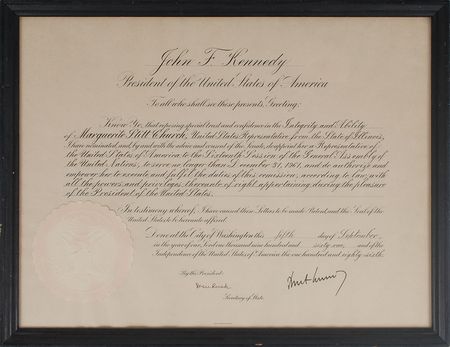 John F. Kennedy
President of the United States of America
To all who shall see these presents, Greeting:
Know Ye, that reposing special trust and confidence in the Integrity and Ability
of Marguerite Stitt Church, United States Representative from the State of Illinois,
I have nominated, and, by and with the advice and consent of the Senate, do appoint her a Representative of
the United States of America to the Sixteenth Session of the General Assembly of
the United Nations, to serve no longer than December 31, 1961, and do authorize and
empower her to execute and fulfil the duties of this commission, according to law, with
all the powers and privileges thereunto of right appertaining, during the pleasure
of the President of the United States.
In testimony whereof, I have caused these Letters to be made Patent and the Seal of the
United States to be hereunto affixed.
Done at the City of Washington this fifth day of September,
in the year of our Lord one thousand nine hundred and sixty-one, and of the
Independence of the United States of America the one hundred and eighty-sixth.
By the President:
Dean Rusk
Secretary of State